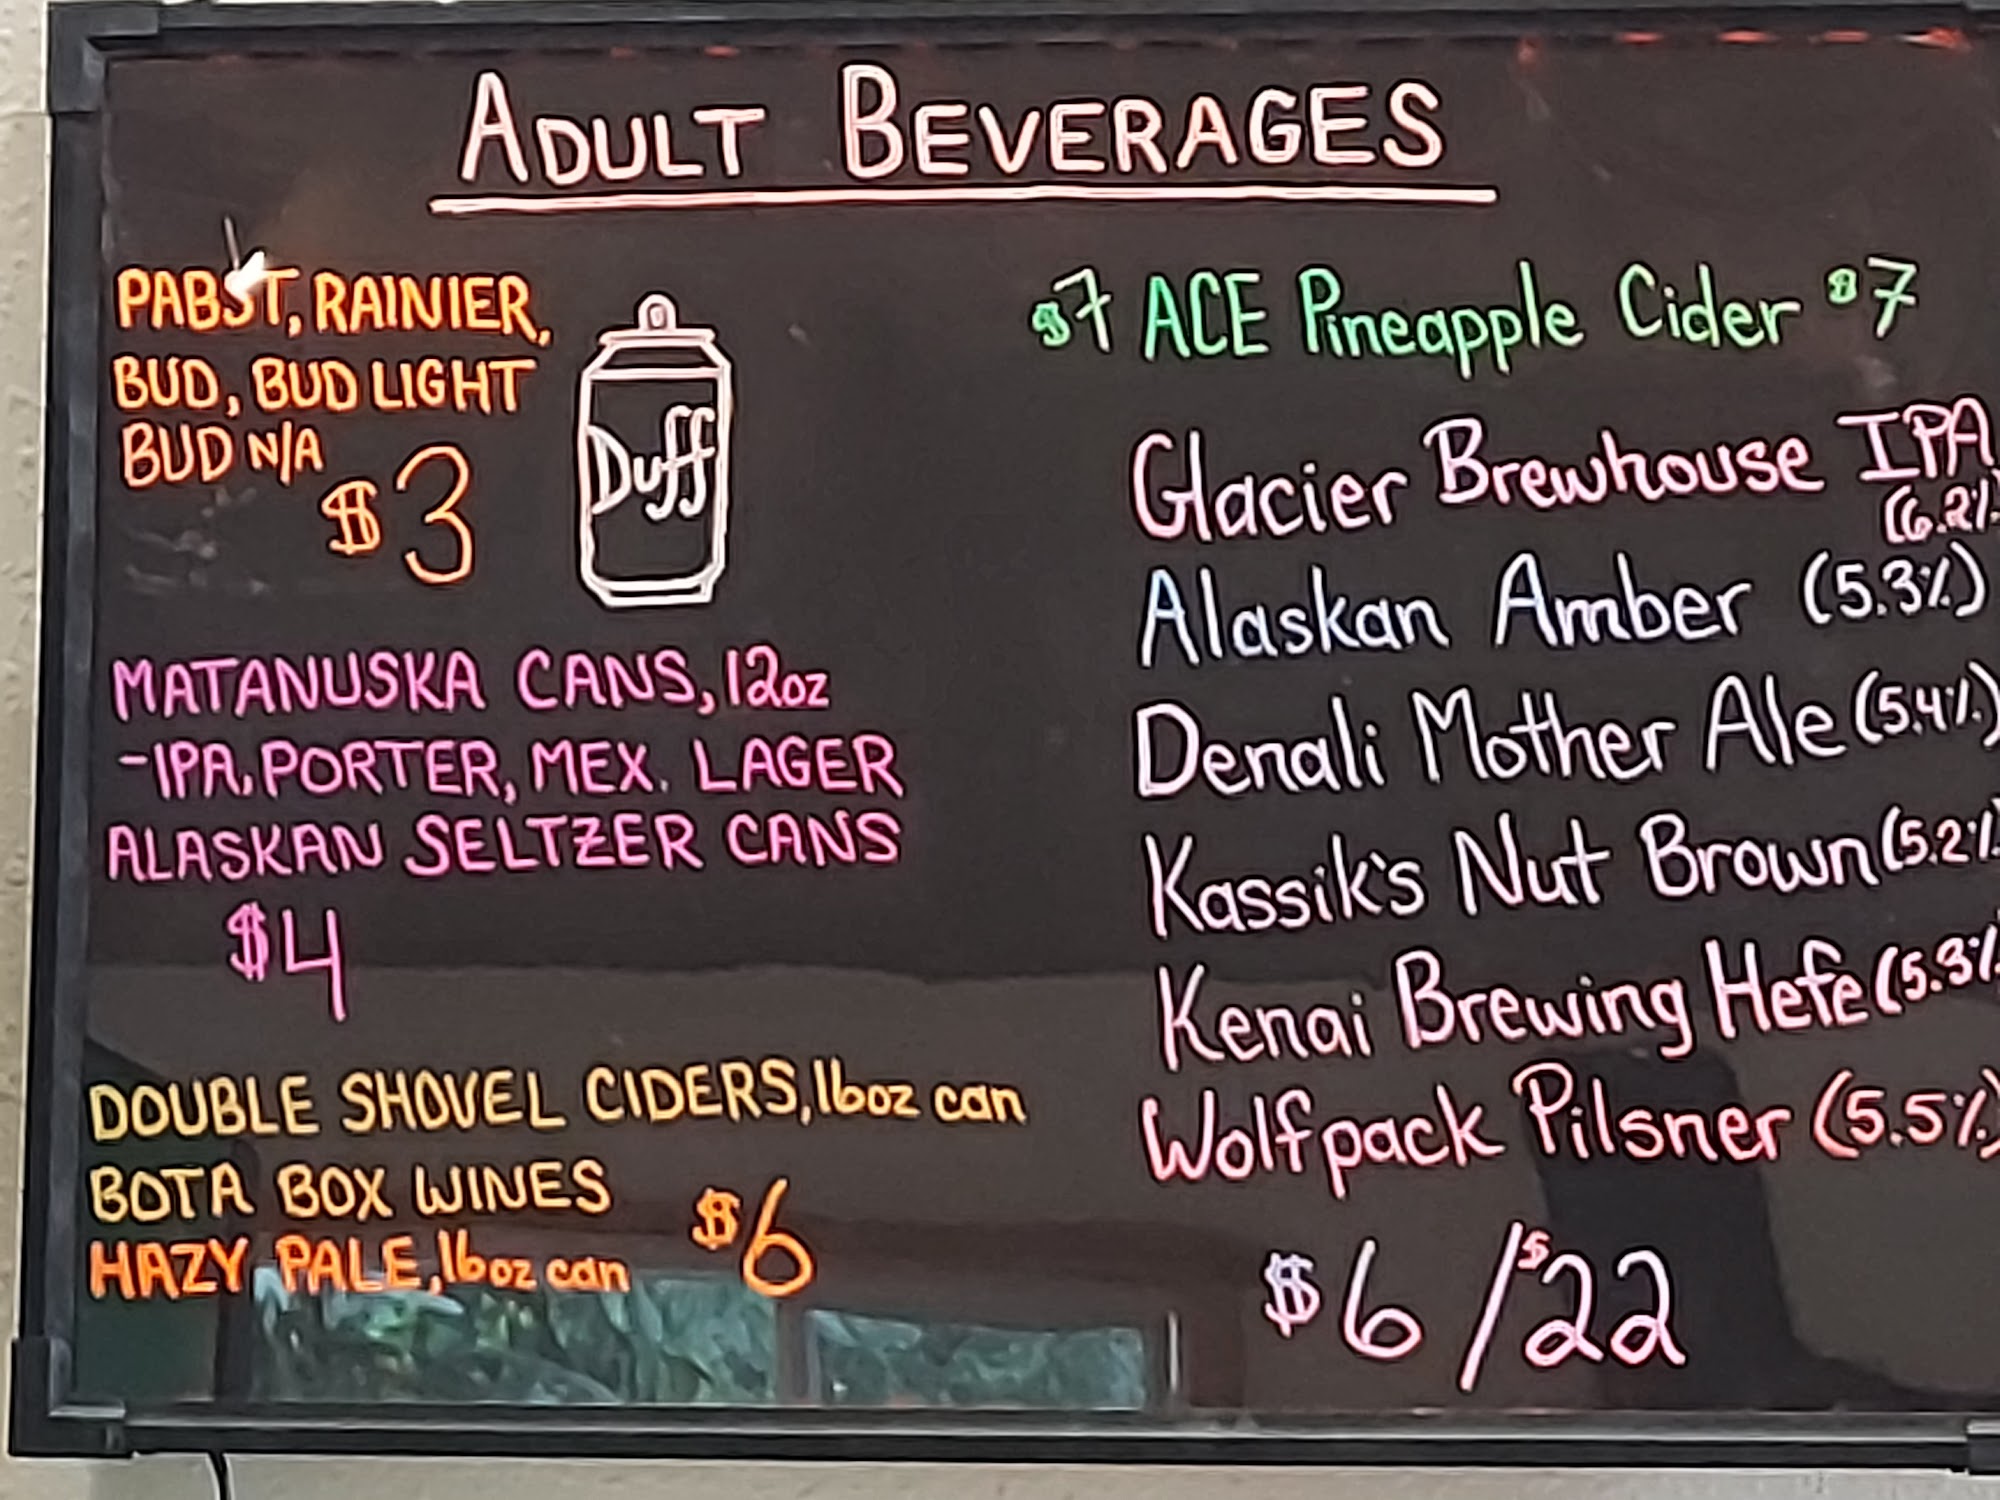 ADULT BEVERAGES
PABST, RAINIER,
BUD, BUD LIGHT
BUD N/A
$3
Duff
MATANUSKA CANS, 12oz
-IPA, PORTER, MEX. LAGER
ALASKAN SELTZER CANS
$4
DOUBLE SHOVEL CIDERS, 16oz can
BOTA BOX WINES
HAZY PALE, 16oz can
$6
$7 ACE Pineapple Cider $7
Glacier Brewhouse IPA
(6.2%
Alaskan Amber (5.3%)
Denali Mother Ale (5.4%)
Kassik's Nut Brown (5.2%
Kenai Brewing Hefe (5.3%
Wolfpack Pilsner (5.5%)
$6/$22